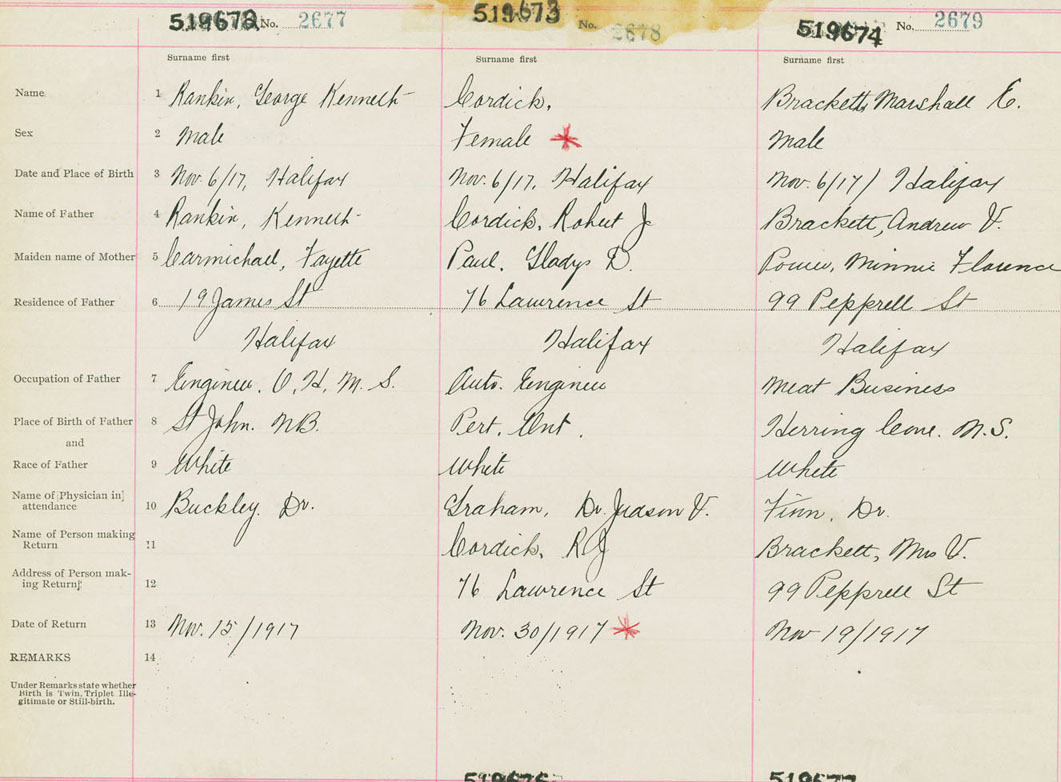 519672 No. 2677 519673 No. 2678 519674 No. 2679
Surname first Surname first Surname first
Name 1 Rankin, George Kenneth Cordick, Brackett, Marshall E.
Sex 2 Male Female * Male
Date and Place of Birth 3 Nov. 6/17, Halifax Nov. 6/17, Halifax Nov. 6/17/ Halifax
Name of Father 4 Rankin, Kenneth Cordick, Robert J Brackett, Andrew V.
Maiden name of Mother 5 Carmichael, Fayette Paul, Gladys D. Minnie Florence
Residence of Father 6 19 James St 76 Lawrence St 99 Pepprell St
Halifax Halifax Halifax
Occupation of Father 7 Engineer. O.H.M.S. Auto. Engineer Meat Business
Place of Birth of Father 8 St John. NB. Pert. Ont. Herring Cove. N.S.
and
Race of Father 9 White White White
Name of Physician in
attendance 10 Buckley Dr. Graham, Dr. Judson V. Finn, Dr.
Name of Person making
Return 11 Cordick, R J Brackett, Mrs V.
Address of Person mak-
ing Return 12 76 Lawrence St 99 Pepprell St
Date of Return 13 Nov. 15/1917 Nov. 30/1917 * Nov 19/1917
REMARKS 14
Under Remarks state whether
Birth is Twin, Triplet Ille-
gitimate or Still-birth.